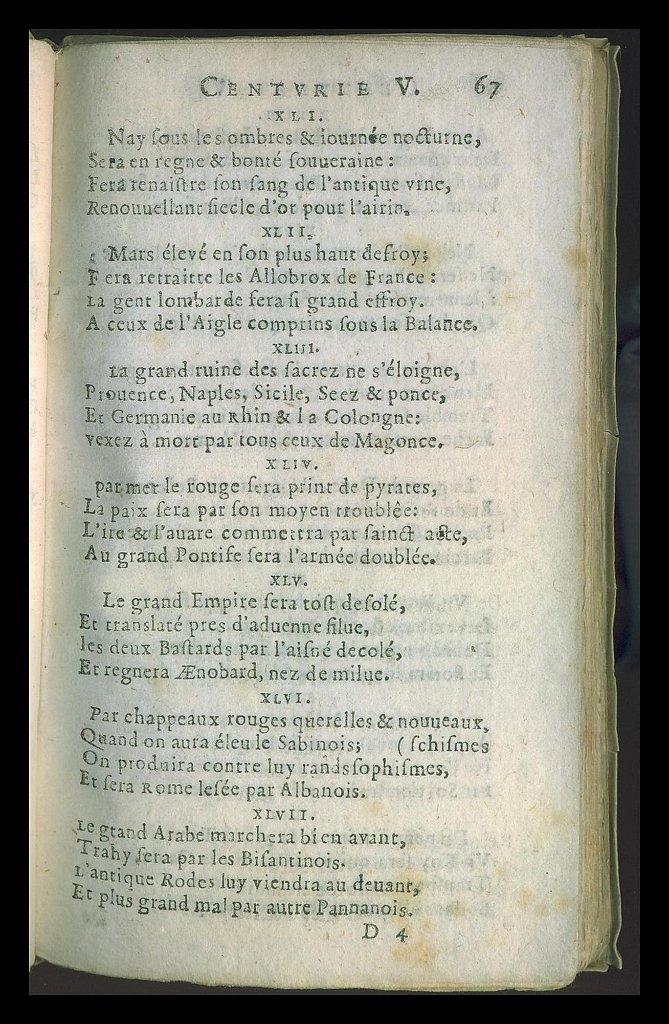 CENTVRIE V. 67
XLI.
Nay ſous les ombres & iournée nocturne,
Sera en regne & bonté ſouueraine :
Fera renaiſtre ſon ſang de l'antique vrne,
Renouuellant ſiecle d'or pour l'airin.
XLII.
Mars élevé en ſon plus haut deſroy;
Fera retraitte les Allobrox de France :
La gent lombarde fera ſi grand effroy.
A ceux de l'Aigle comprins ſous la Balance.
XLIII.
La grand ruine des ſacrez ne s'éloigne,
Prouence, Naples, Sicile, Seez & ponce,
Et Germanie au Rhin & la Colongne:
vexez à mort par tous ceux de Magonce.
XLIV.
par mer le rouge ſera print de pyrates,
La paix ſera par ſon moyen troublêe:
L'ire & l'auare commettra par ſainct acte,
Au grand Pontife ſera l'armée doublée.
XLV.
Le grand Empire ſera toſt deſolé,
Et translaté pres d'aduenne ſilue,
les deux Baſtards par l'aiſné decolé,
Et regnera Ænobard, nez de milue.
XLVI.
Par chappeaux rouges querelles & nouueaux,
Quand on aura éleu le Sabinois; ( ſchiſmes
On produira contre luy rands ſophiſmes,
Et ſera Rome leſée par Albanois.
XLVII.
Le gtand Arabe marchera bien avant,
Trahy ſera par les Biſantinois.
L'antique Rodes luy viendra au deuant,
Et plus grand mal par autre Pannanois.
D 4